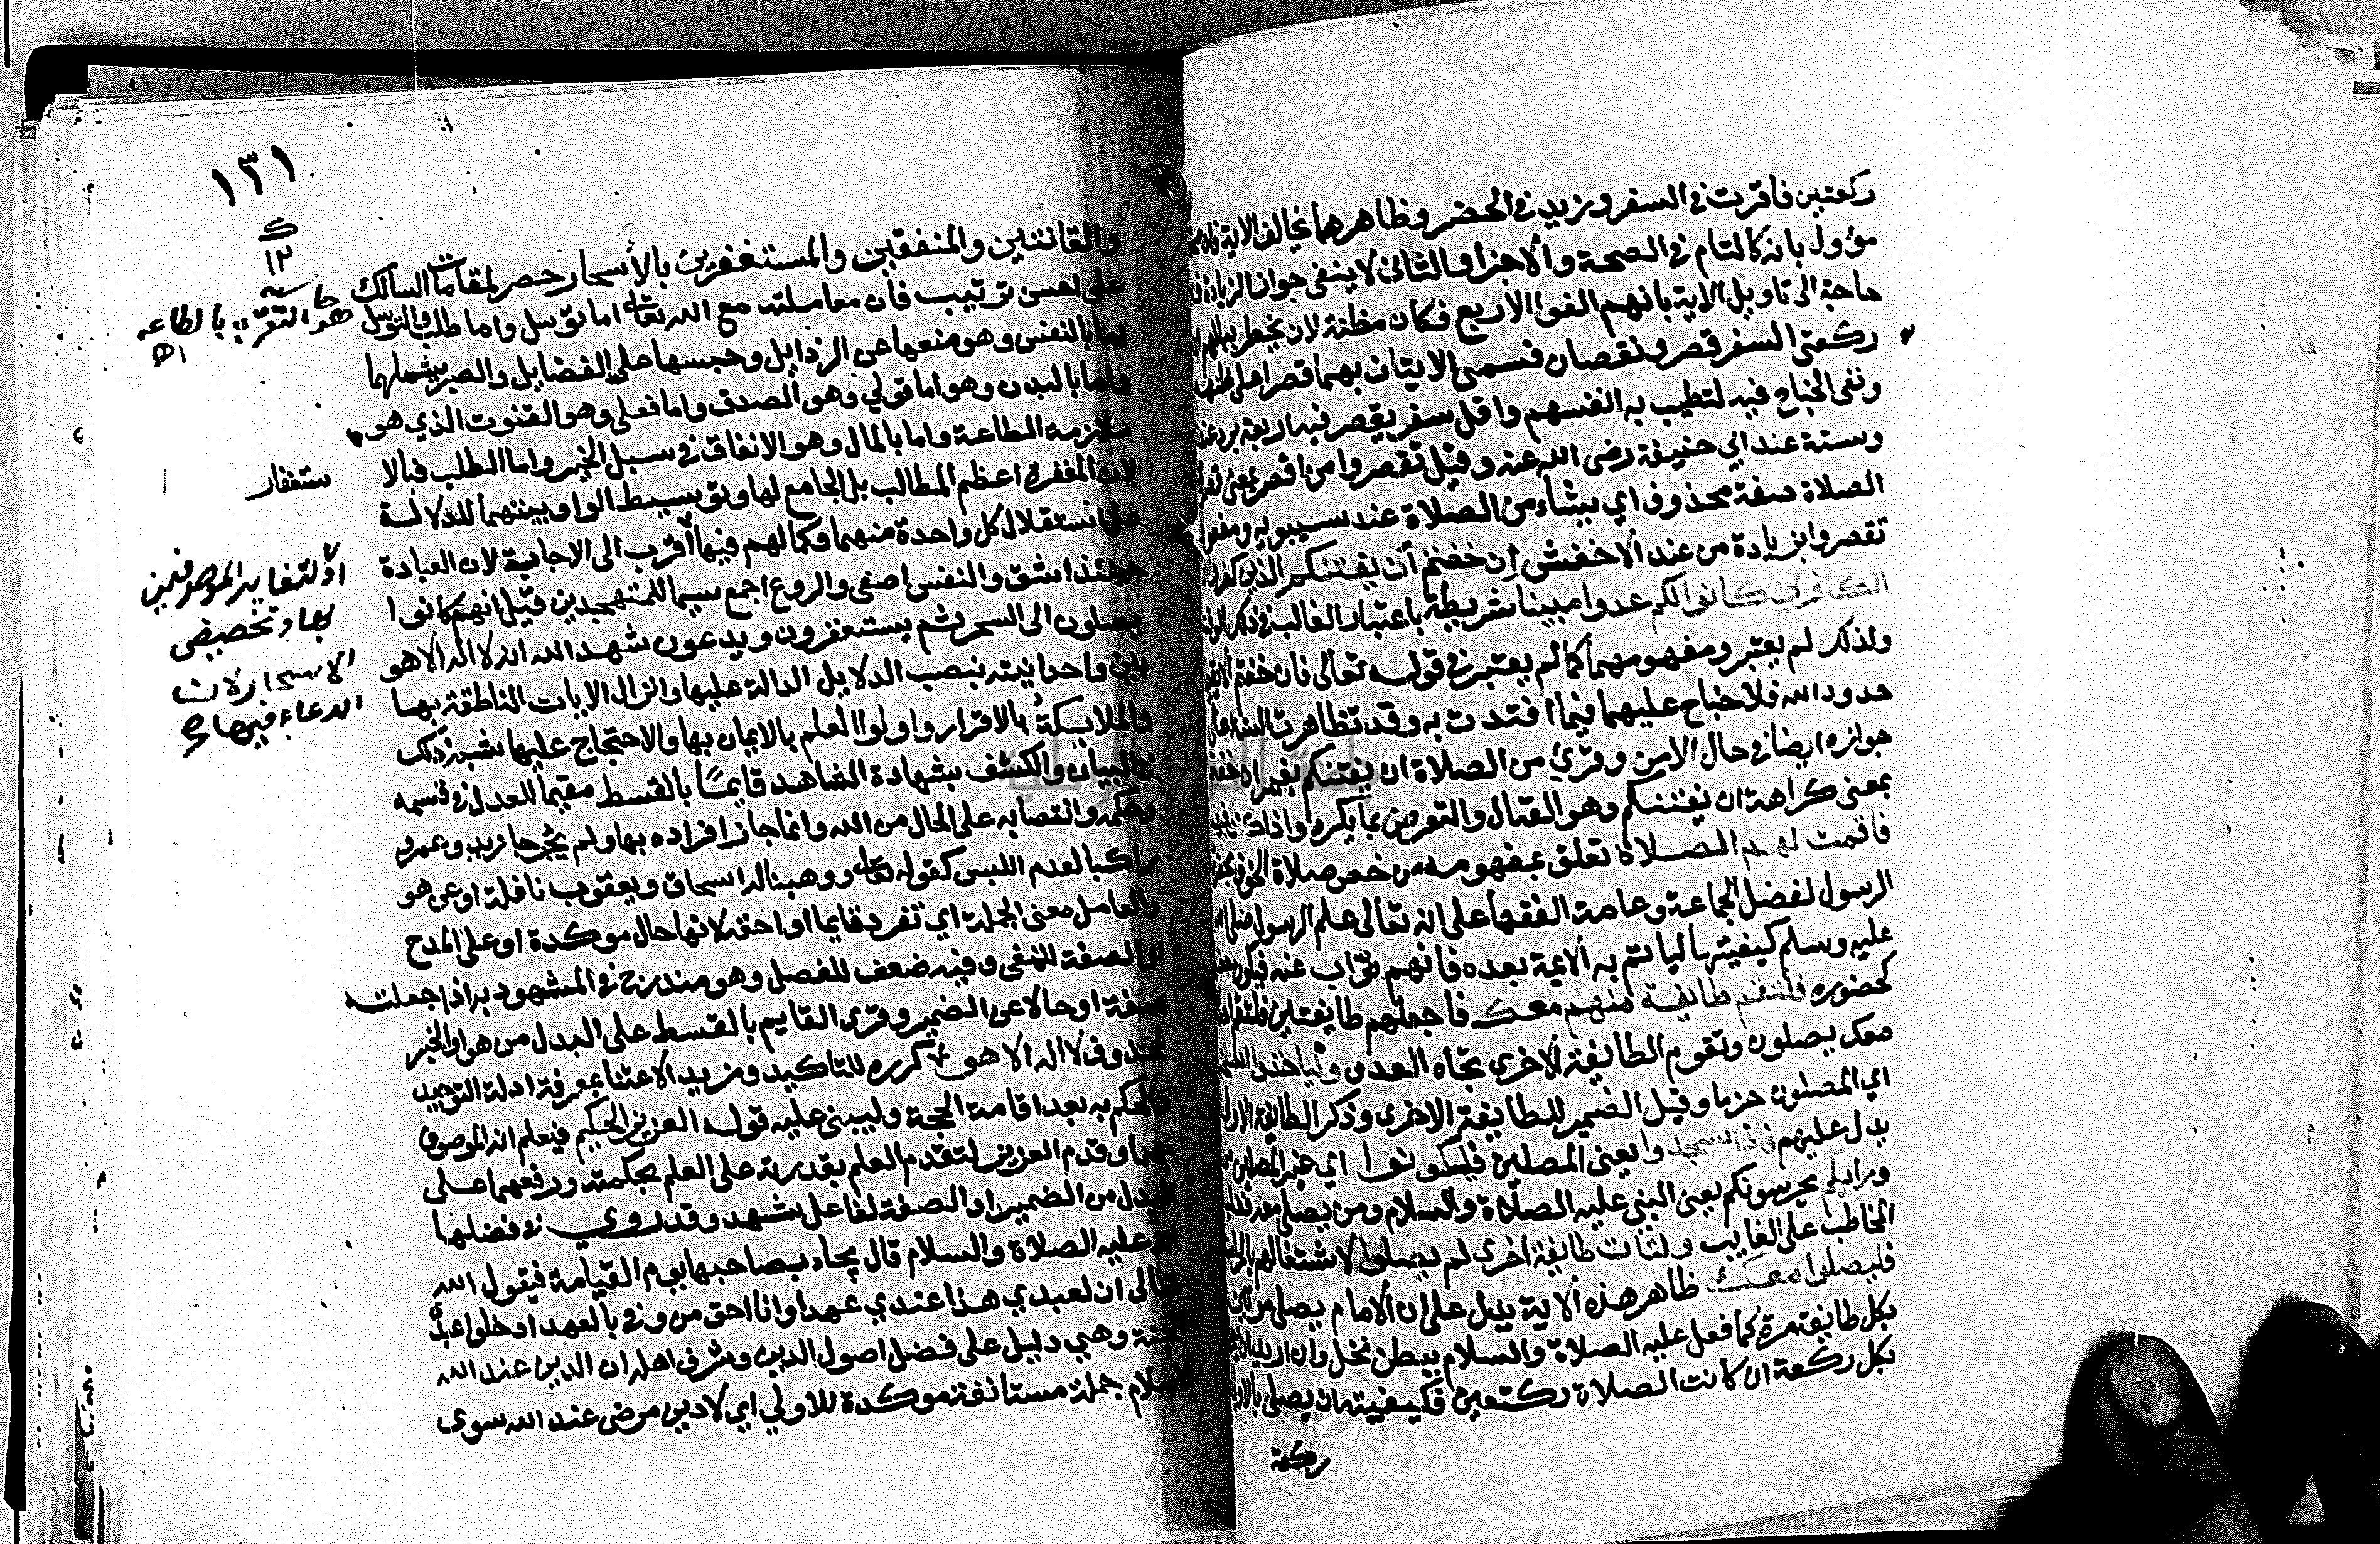 ركعتين فاقرت في السفر وزيد في الحضر وظاهرهما يخالف الاية فان صحا
مؤول بانه كالتام في الصحة والاجزا والثاني لا ينفي جواز الزيادة فلا
حاجة الى تاويل الاية بانهم الفوا الاربع فكان مظنة لان يخطر ببالهم ان
ركعتي السفر قصر ونقصان فسمى الاتيان بهما قصرا على ظنهم
ونفى الجناح فيه لتطيب به انفسهم واقل سفر يقصر فيه اربعة برد عندنا
وستة عند ابي حنيفة رضي الله عنه وقيل تقصروا من اقصر بمعنى قصر
الصلاة صفة محذوف اي شياء من الصلاة عند سيبويه ومفعول
تقصروا بزيادة من عند الاخفش إن خفتم أن يفتنكم الذين كفروا ان
الكافرين كانوا لكم عدوا مبينا شريطة باعتبار الغالب في ذلك الوقت
ولذلك لم يعتبر ومفهومهما كما لم يعتبر في قوله تعالى فان خفتم الا يقيما
حدود الله فلا جناح عليهما فيما افتدت به وقد تظاهرت السنة على
جوازه ايضا في حال الامن وقرئ من الصلاة ان يفتنكم بغير ان خفتم
بمعنى كراهة ان يفتنكم وهو القتال والتعرض بما يكره واذا كنت فيهم
فاقمت لهم الصلاة تعلق بمفهومه من خص صلاة الخوف بحضرة
الرسول لفضل الجماعة وعامة الفقهأ على انه تعالى علم الرسول صلى الله
عليه وسلم كيفيتها ليأتم به الائمة بعده فانهم نوّاب عنه فيكون حضورهم
كحضوره فلتقم طائفة منهم معك فاجعلهم طايفتين فلتقم احداهما
معك يصلون وتقوم الطايفة الاخرى تجاه العدو وليأخذوا اسلحتهم
اي المصلون حزما وقيل الضمير للطايفة الاخرى وذكر الطايفة الاولى
يدل عليهم فاذا سجدوا يعني المصلين فليكونوا اي غير المصلين من
ورائكم يحرسونكم يعني النبي عليه الصلاة والسلام ومن يصلي معه فغلب
المخاطب على الغايب ولتأت طايفة اخرى لم يصلوا لاشتغالهم بالحراسة
فليصلوا معك ظاهر هذه الاية يدل على ان الامام يصلي مرتين
بكل طايفة مرة كما فعل عليه الصلاة والسلام ببطن نخل وان اريد ان يصلي
بكل ركعة ان كانت الصلاة ركعتين فكيفيته ان يصلي بالاولى
ركعة
١٣١
ك
١٢
والقانتين والمنفقين والمستغفرين بالأسحار حصر لمقامات السالك
على احسن ترتيب فان معاملته مع الله تعالى اما توسل واما طلب والتوسل
اما بالنفس وهو منعها عن الرذايل وحبسها على الفضايل والصبر يشملهما
واما بالبدن وهو اما قولي وهو الصدق واما فعلي وهو القنوت الذي هو
ملازمة الطاعة واما بالمال وهو الانفاق في سبل الخير واما الطلب فبالا
لان المغفرة اعظم المطالب بل الجامع لها وتوسيط الواو بينهما للدلالة
على استقلال كل واحدة منهما وكمالهم فيها أقرب الى الاجابة لان العبادة
حينئذ اشق والنفس اصفى والروع اجمع سيما للمتهجدين قيل انهم كانوا
يصلون الى السحر ثم يستغفرون ويدعون شهد الله انه لا اله الا هو
بين واحدانيته بنصب الدلايل الدالة عليها وانزال الايات الناطقة بها
والملايكةُ بالاقرار واولوا العلم بالايمان بها والاحتجاج عليها شبه ذلك
في البيان والكشف بشهادة الشاهد قايمًا بالقسط مقيما للعدل في قسمه
وحكمه وانتصابه على الحال من الله وانما جاز افراده بها ولم يجز جا زيد وعمرو
راكبا لعدم اللبس كقوله تعالى ووهبنا له اسحاق ويعقوب نافلة او عن هو
والعامل معنى الجملة اي تفرد قايما او احقه لانها حال موكدة او على المدح
او الصفة للنفي وفيه ضعف للفصل وهو مندرج في المشهود به اذا جعلته
صفة او حالا عن الضمير وقرئ القايم بالقسط على البدل من هو او الخبر
لمحذوف لا اله الا هو كرره للتاكيد ومزيد الاعتنا بمعرفة ادلة التوحيد
والحكم به بعد اقامة الحجة وليبنى عليه قوله العزيز الحكيم فيعلم انه الموصوف
بهما وقدم العزيز لتقدم العلم بقدرته على العلم بحكمته ورفعهما على
البدل من الضمير او الصفة لفاعل شهد وقد روي في فضلها
انه عليه الصلاة والسلام قال يجاء بصاحبها يوم القيامة فيقول الله
تعالى ان لعبدي هذا عندي عهدا وانا احق من وفى بالعهد ادخلوا عبدي
الجنة وهي دليل على فضل اصول الدين وشرف اهله ان الدين عند الله
الاسلام جملة مستانفة موكدة للاولي اي لا دين مرضى عند الله سوى
هو التقرب بالطاعه
اه
ستغفار
او لتغاير الموصوفين
بها وتخصيص
الاسحار لان
الدعاء فيها